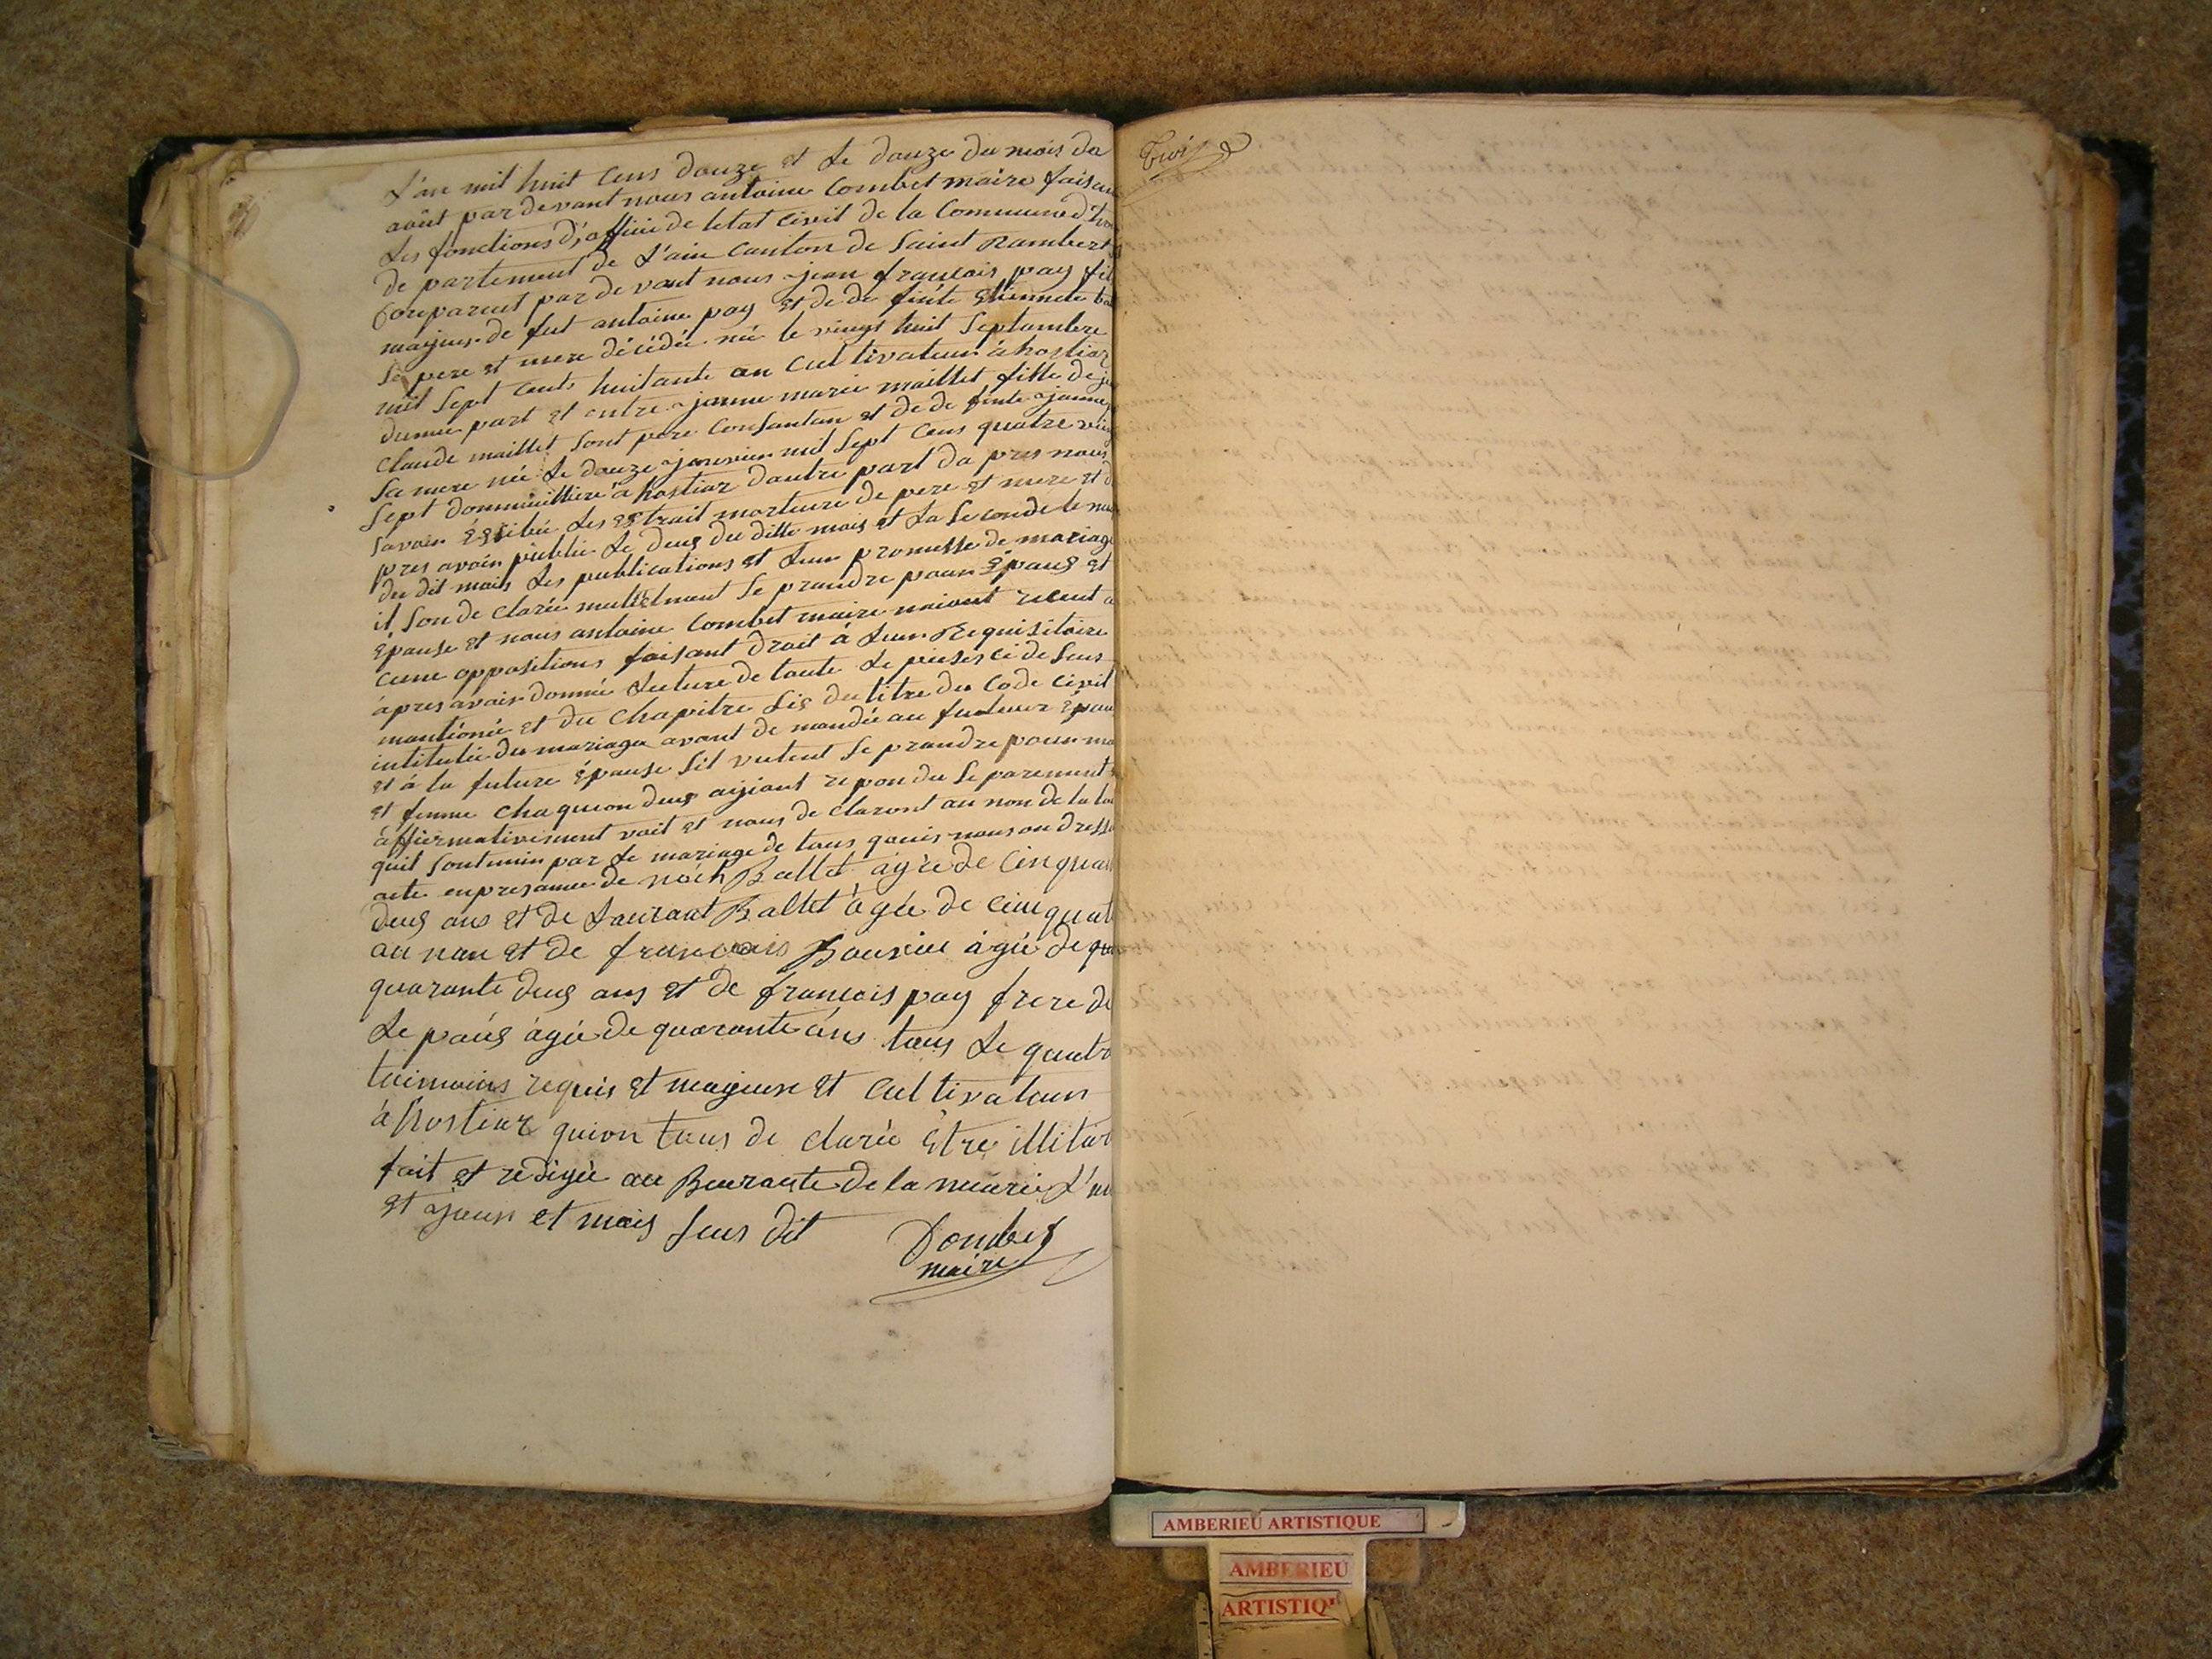 L'an mil huit cens douze et le douze du mois da
août par devant nous antoine Combet maire faisan
Les fonctions d'officie de letat civil de la Commune d'ho
de partement de L'ain Canton de Saint Rambert
Conparent par de vant nous jean francois pay fil
majeur de fut antoine pay et de de finte Etiennete
Sé pere et mere décédée né le vingt huit Septambre
mil Sept cents huitante an Cul tivateur à hostiaz
dunne part et entre jeanne marie maillet fille de je
Claude maillet Sont pere Consantan et de de finte jeanne
Sa mere née Le douze jenvier mil Sept Cens quatre vin
Sept dommicillere à hostiaz dautre part da pres nous
savoir Exsibée Les Extrait mortuere de pere et mere et d
pres avoir publié Le deux du ditte mois et La Seconde le neu
du dit mois Les publications et Leur promesse de mariage
il Son de clarée mutuelmant Se prandre pour Epoux et
Epouse et nous antoine Combet maire naiant recut a
cune oppositions faisant droit à Leur Requisitoire
apres avoir donné Lecture de toute Le pieses ci de Sus
mantionée et du Chapitre Six du titre du Code civil
intitulée du mariage avont de mandée au futeur épou
et à la future épouse Sil veulent Se prandre pour ma
et femme Chaqueun deux aiyiant repondu Séparement
affirmativement vait et nous de claront au non de la loi
quil Sont unin par Le mariage de tous quois nous on dressé
acte en presance de Ballet agée de Cinquan
deux ans et de Laurant Ballet àgée de Cinquant
au nan et de francois agée de qua
quarante deux ans et de francois pay frere de
Le poûx àgée de quarante ans tous Le quatr
taimoins requis et majeure et Cul tivateur
à hostiaz quion tous de clarée Etre illitér
fait et redigée au Bureaute de la mairie L'an
et jour et mois Sus dit
Combet
maire
AMBERIEU ARTISTIQUE
AMBERIEU
ARTISTIQ